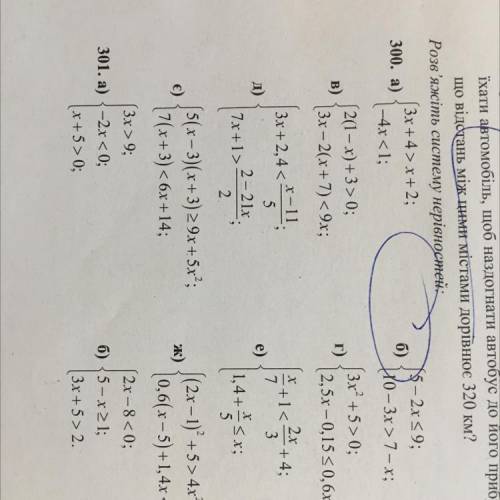 їхати автомобіль, щоб наздогнати автобус до його
що відстань між цими містами дорівнює 320 км?
Розв'яжіть систему нерівностей:
300. а) { 3x + 4 > x + 2; −4x < 1;
б) { 5 − 2x ≤ 9; 10 − 3x > 7 − x;
в) { 2(1 − x) + 3 > 0; 3x − 2(x + 7) < 9x;
г) { 3x² + 5 > 0; 2,5x − 0,15 ≤ 0,6x
д) { 3x + 2,4 < (x − 11)/5; 7x + 1 > (2 − 21x)/2;
е) { x/7 + 1 < 2x/3 + 4; 1,4 + x/5 ≤ x;
є) { 5(x − 3)(x + 3) ≥ 9x + 5x²; 7(x + 3) < 6x + 14;
ж) { (2x − 1)² + 5 > 4x² 0,6(x − 5) + 1,4x
301. а) { 3x > 9; −2x < 0; x + 5 > 0;
б) { 2x − 8 < 0; 5 − x ≥ 1; 3x + 5 > 2.